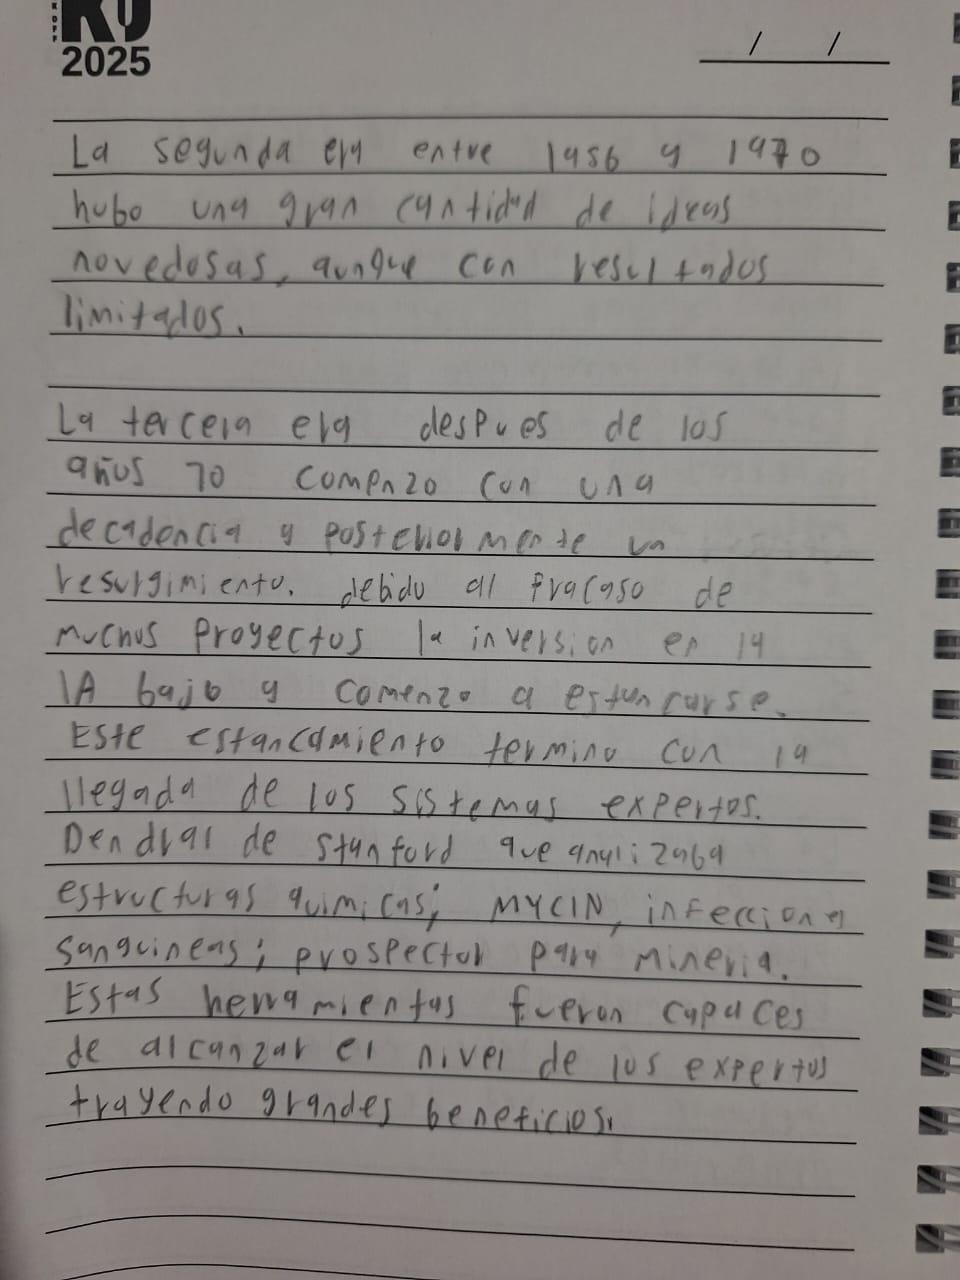 2025
/ /
La segunda era entre 1956 y 1970
hubo una gran cantidad de ideas
novedosas, aunque con resultados
limitados.
La tercera era despues de los
años 70 comenzo con una
decadencia y posteriormente un
resurgimiento. debido al fracaso de
muchos proyectos la inversion en la
IA bajo y comenzo a estancarse.
Este estancamiento termino con la
llegada de los sistemas expertos.
Dendral de Stanford que analizaba
estructuras quimicas; MYCIN, infecciones
sanguineas; prospector para mineria.
Estas herramientas fueron capaces
de alcanzar el nivel de los expertos
trayendo grandes beneficios.